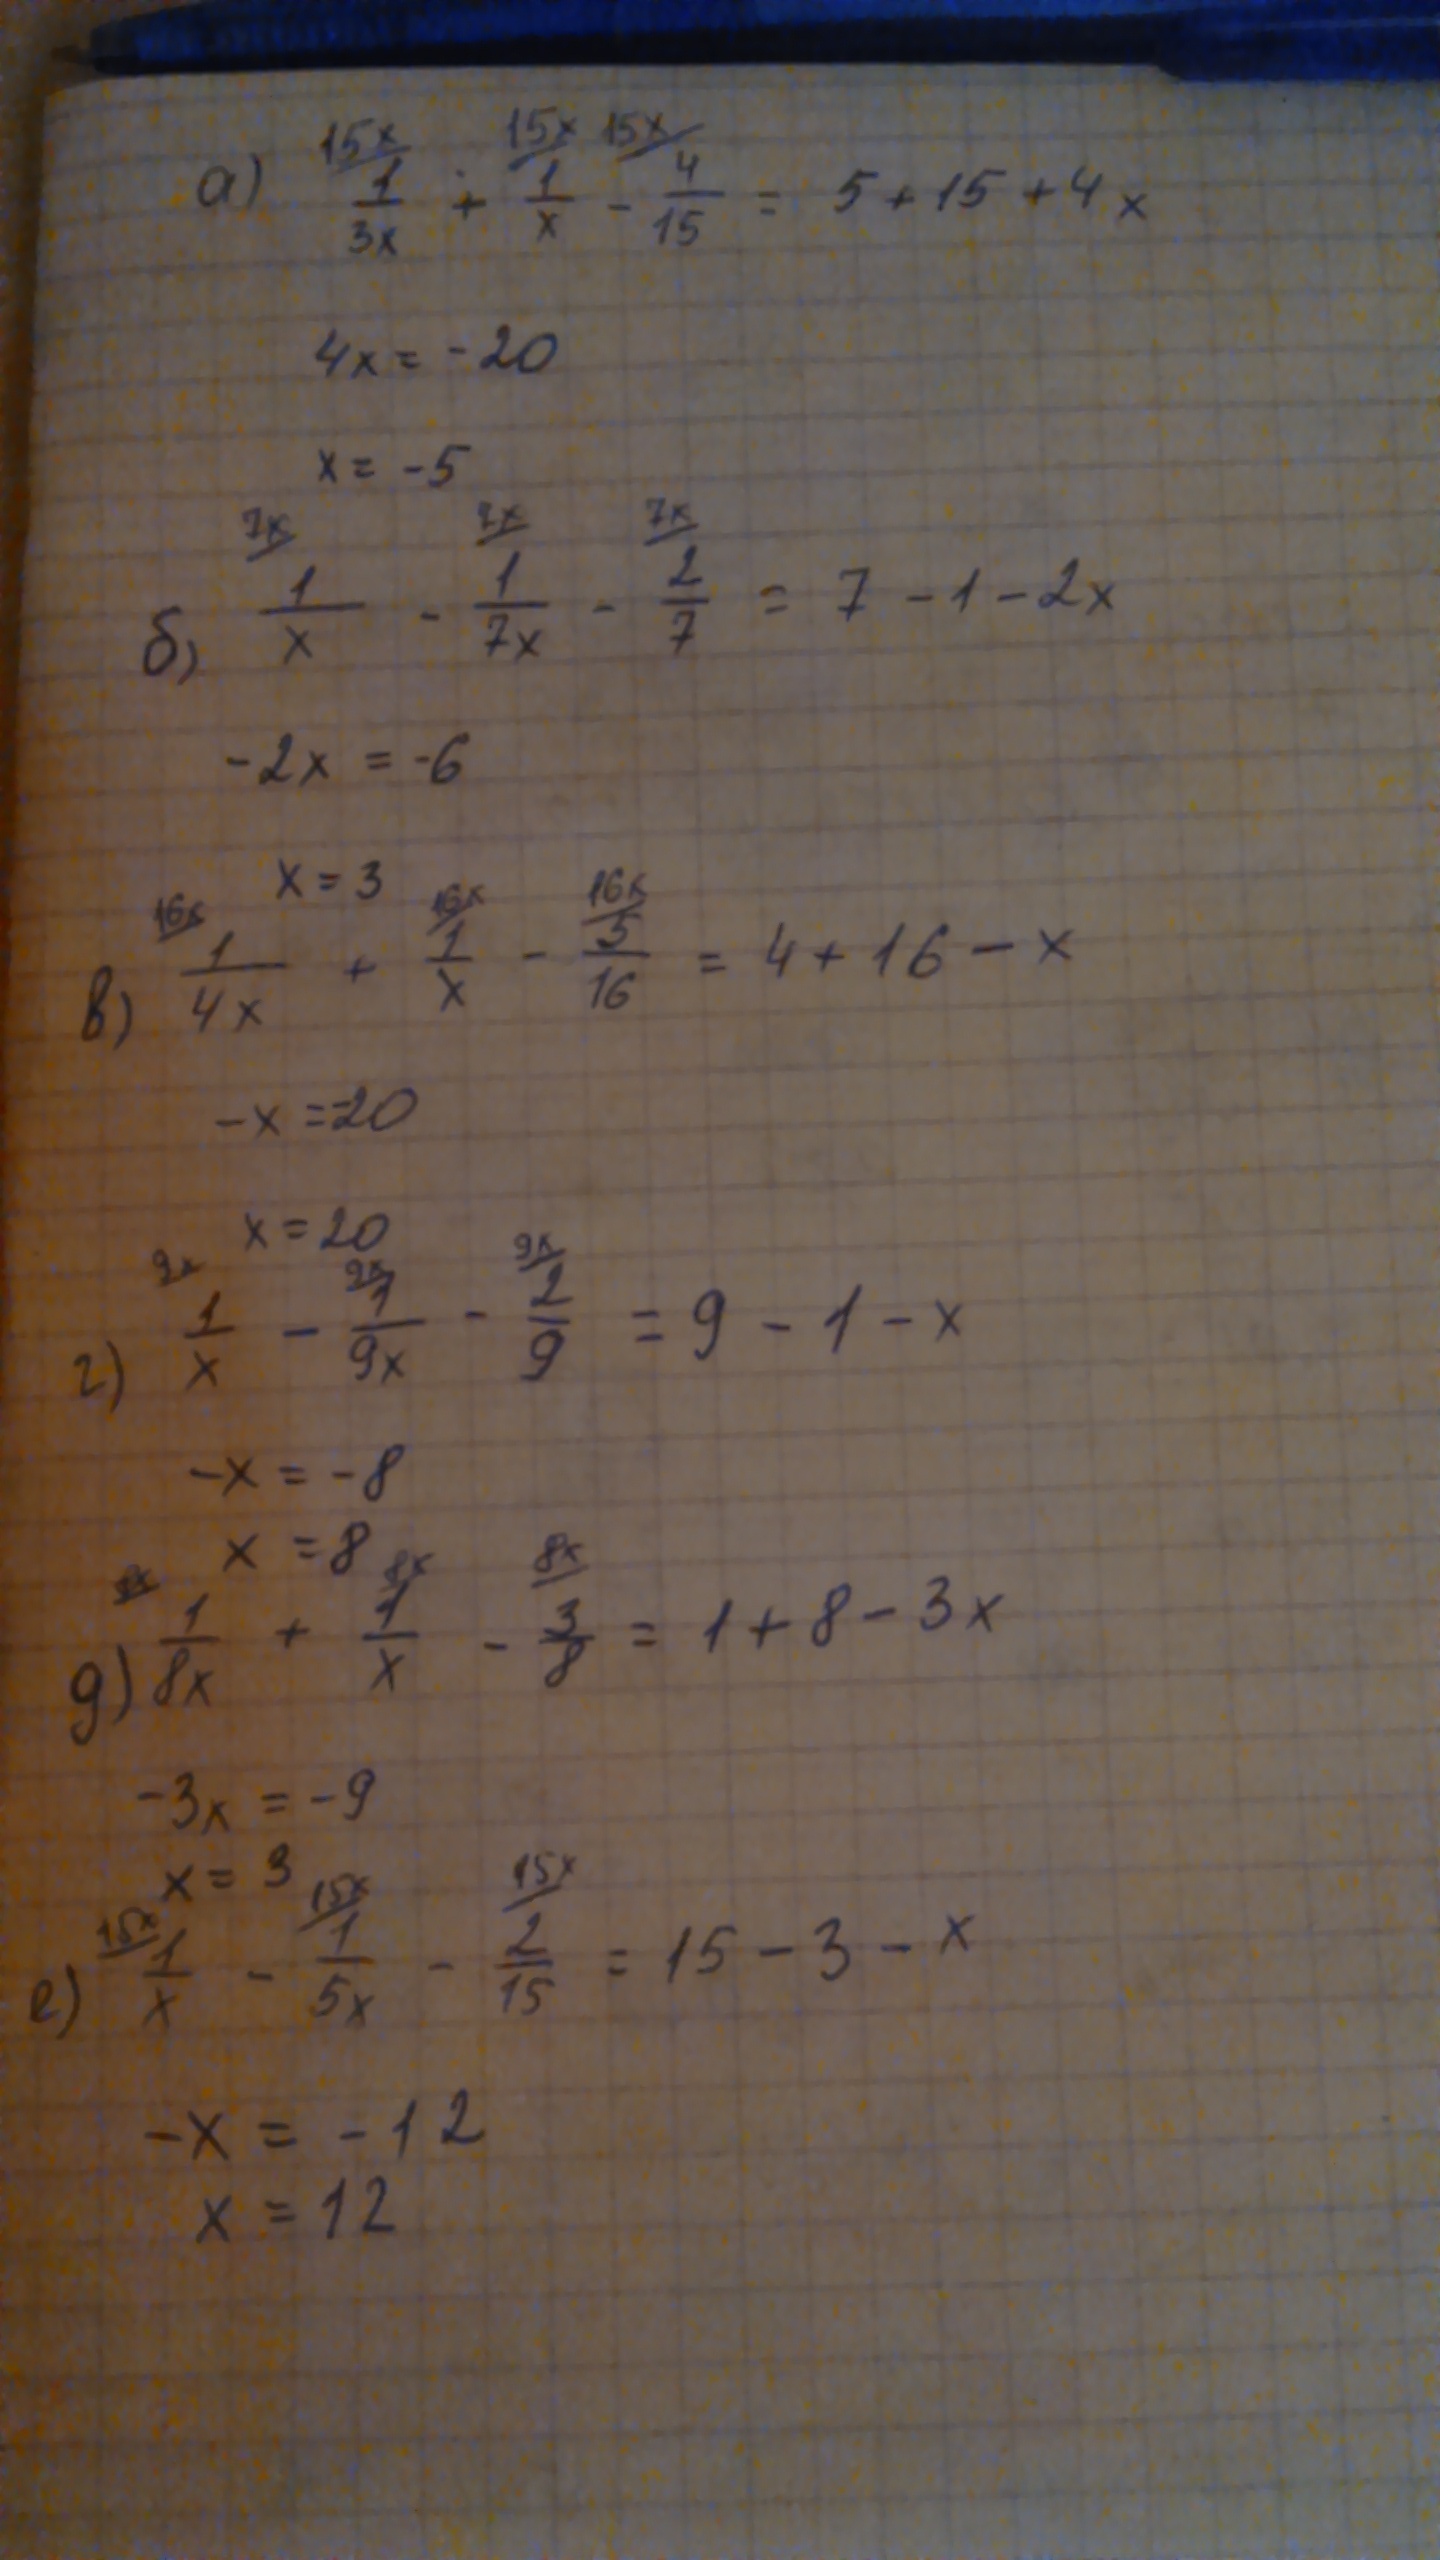 а) 15x/ 1/3x + 15x/ 1/x - 15x/ 4/15 = 5 + 15 + 4x
4x = -20
x = -5
б) 7x/ 1/x - 7x/ 1/7x - 7x/ 2/7 = 7 - 1 - 2x
-2x = -6
x = 3
в) 16x/ 1/4x + 16x/ 1/x - 16x/ 5/16 = 4 + 16 - x
-x = -20
x = 20
г) 9x/ 1/x - 9x/ 1/9x - 9x/ 2/9 = 9 - 1 - x
-x = -8
x = 8
д) 8x/ 1/8x + 8x/ 1/x - 8x/ 3/8 = 1 + 8 - 3x
-3x = -9
x = 3
е) 15x/ 1/x - 15x/ 1/5x - 15x/ 2/15 = 15 - 3 - x
-x = -12
x = 12